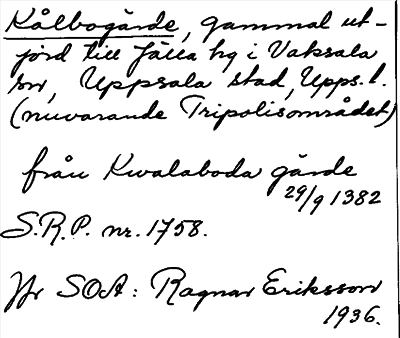 Kålbogärde, gammal ut-
jord till Jälla hg i Vaksala
sn, Uppsala stad, Upps. l.
(nuvarande Tripolisområdet)
från Kwalaboda gärde
29/9 1382
S.R.P. nr. 1758.
Yr SOA: Ragnar Eriksson
1936.